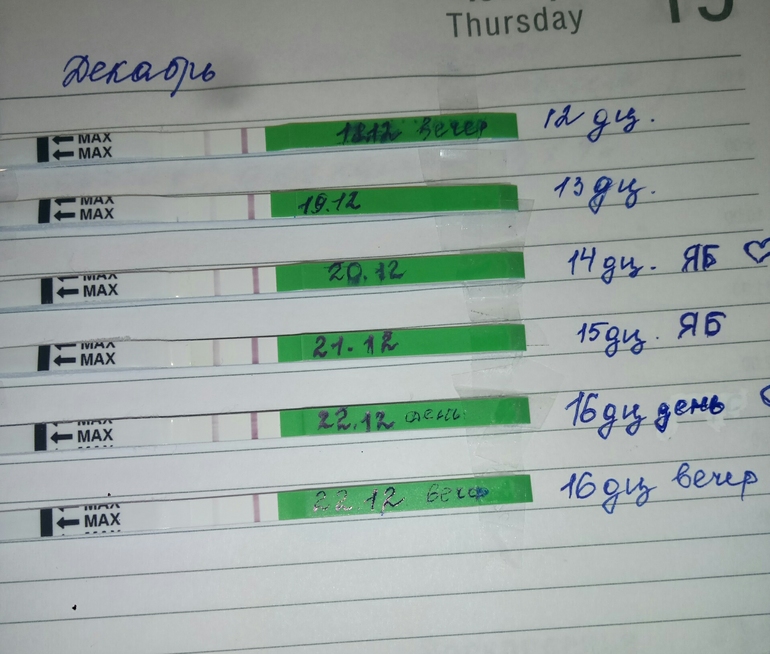 Thursday 15
Декабрь
MAX
MAX
18.12 вечер 12 дц.
MAX
MAX
19.12 13 дц.
MAX
MAX
20.12 14 дц. ЯБ
MAX
MAX
21.12 15 дц. ЯБ
MAX
MAX
22.12 день 16 дц день
MAX
MAX
22.12 вечер 16 дц вечер